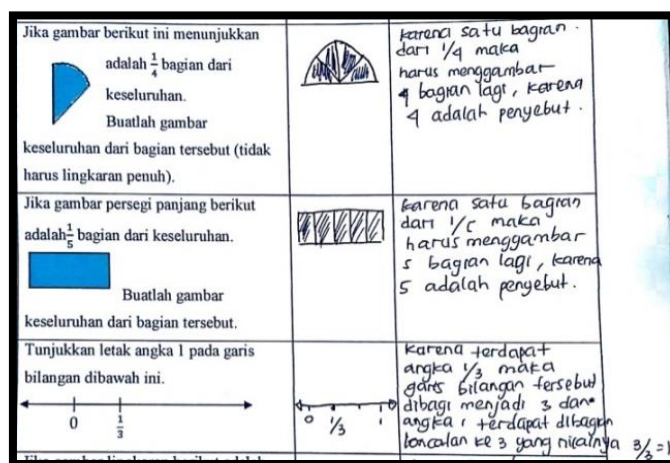 Jika gambar berikut ini menunjukkan
adalah 1/4 bagian dari
keseluruhan.
Buatlah gambar
keseluruhan dari bagian tersebut (tidak
harus lingkaran penuh).
karena satu bagian.
dari 1/4 maka
harus menggambar
4 bagian lagi, karena
4 adalah penyebut.
Jika gambar persegi panjang berikut
adalah 1/5 bagian dari keseluruhan.
Buatlah gambar
keseluruhan dari bagian tersebut.
karena satu bagian
dari 1/5 maka
harus menggambar
5 bagian lagi, karena
5 adalah penyebut.
Tunjukkan letak angka 1 pada garis
bilangan dibawah ini.
0 1/3
0 1/3 1
karena terdapat
angka 1/3 maka
garis bilangan tersebut
dibagi menjadi 3 dan
angka 1 terdapat dibagian
loncatan ke 3 yang nilainya 3/3 = 1